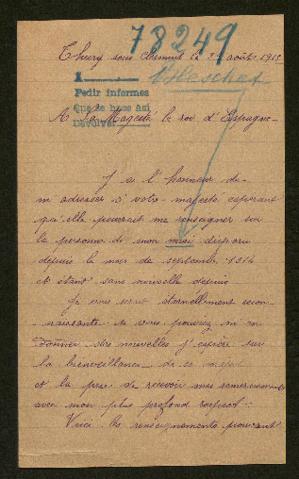 78249
sous Clermont le août 1915
1
Pedir informes
Que se hace así
Devolver
A Sa Majesté le roi d'Espagne
J ai l'honneur de
m adresser à votre majesté espérant
qu'elle pourrait me renseigner sur
la personne de mon mari disparu
depuis le mois de septembre 1914
et étant sans nouvelle depuis
Je vous serai éternellement recon
naissante si vous pouviez m en
donner des nouvelles j'espère sur
la bienveillance de sa majesté
et la prie de recevoir mes remerciements
avec mon plus profond respect
Voici les renseignements pouvant